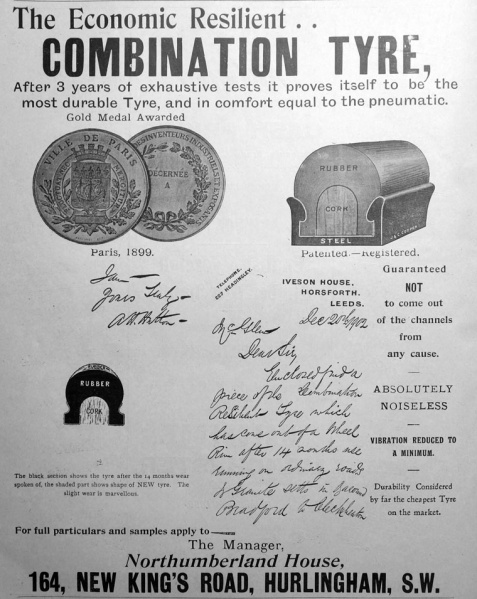 The Economic Resilient . .
COMBINATION TYRE,
After 3 years of exhaustive tests it proves itself to be the
most durable Tyre, and in comfort equal to the pneumatic.
Gold Medal Awarded
VILLE DE PARIS
INVENTEURS INDUSTRIELS ET EXPOSANTS
DÉCERNÉE
A
Paris, 1899.
RUBBER
CORK
STEEL
Patented.—Registered.
I am
Yours truly
TELEPHONE:
HEADINGLEY.
IVESON HOUSE,
HORSFORTH,
LEEDS.
Dec 20th 1902
Dear Sir
Enclosed find a
piece of the Combination
Resilient Tyre which
has come out of a Wheel
Rim after 14 months use
running on ordinary roads
& Granite setts in
Bradford to Cleckheaton
RUBBER
RUBBER
CORK
The black section shows the tyre after the 14 months wear
spoken of, the shaded part shows shape of NEW tyre. The
slight wear is marvellous.
Guaranteed
NOT
to come out
of the channels
from
any cause.
ABSOLUTELY
NOISELESS
VIBRATION REDUCED TO
A MINIMUM.
Durability Considered
by far the cheapest Tyre
on the market.
For full particulars and samples apply to
The Manager,
Northumberland House,
164, NEW KING'S ROAD, HURLINGHAM, S.W.